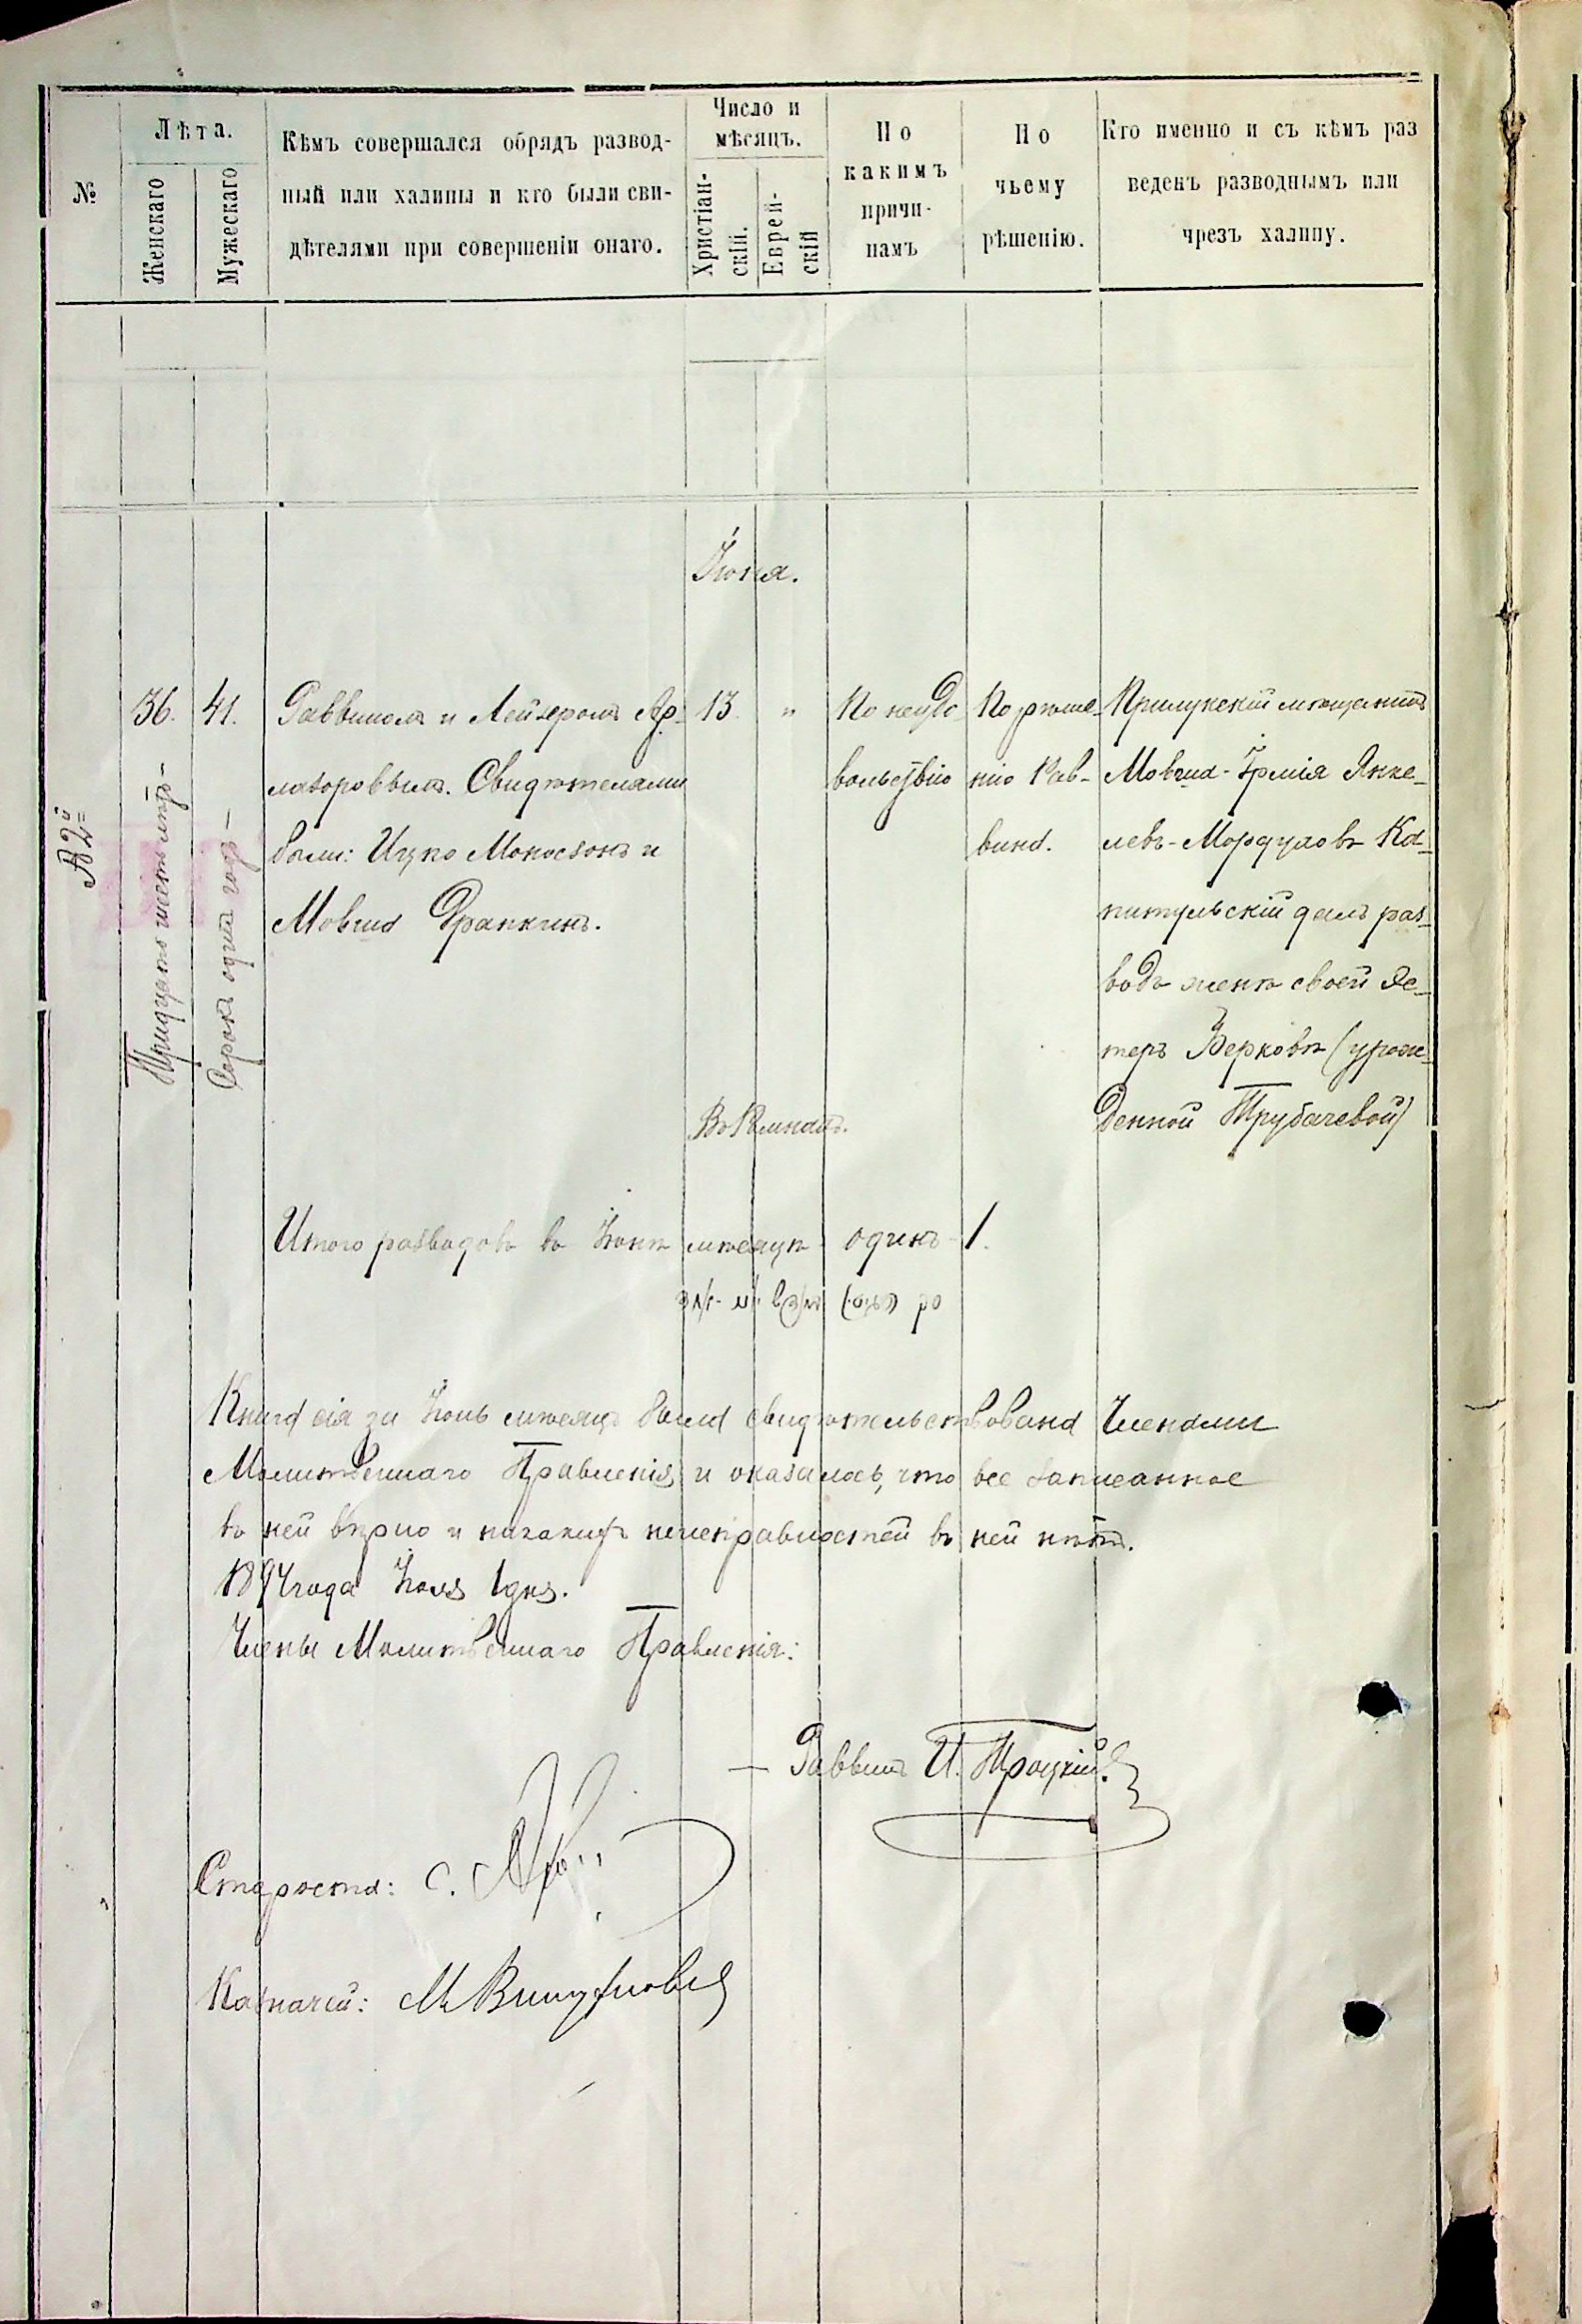 №
Лѣта.
Женскаго
Мужескаго
Кѣмъ совершался обрядъ развод-
ный или халицы и кто были сви-
дѣтелями при совершеніи онаго.
Число и
мѣсяцъ.
Христіан-
скій.
Еврей-
скій
По
какимъ
причи-
намъ
По
чьему
рѣшенію.
Кто именно и съ кѣмъ раз
веденъ разводнымъ или
чрезъ халицу.
Іюня.
36.
Тридцать шесть лѣтъ-
41.
Сорокъ одинъ годъ-
Раввиномъ и Лейзеромъ Ар-
лазоровымъ. Свидѣтелями
были: Ицко Моносзонъ и
Мовша Драпкинъ.
13
"
По неудо
вольствію
По рѣше-
нію Рав-
вина.
Прилукскій мѣщанинъ
Мовша-Ірмія Янке-
левъ-Мордуховъ Ка-
питульскій далъ раз-
водъ женѣ своей Эс-
теръ Берковѣ (урож-
денной Трубачевой)
Въ Ромнахъ.
Итого разводовъ въ Іюнѣ мѣсяцѣ одинъ-1.
Книга сія за Іюнь мѣсяцъ была свидѣтельствована Членами
Молитвеннаго Правленія и оказалось, что все записанное
въ ней вѣрно и никакихъ неисправностей въ ней нѣтъ.
1894 года Іюля 1 дня.
Члены Молитвеннаго Правленія:
Раввинъ И. Троцкій.
Староста: С.
Казначей: М